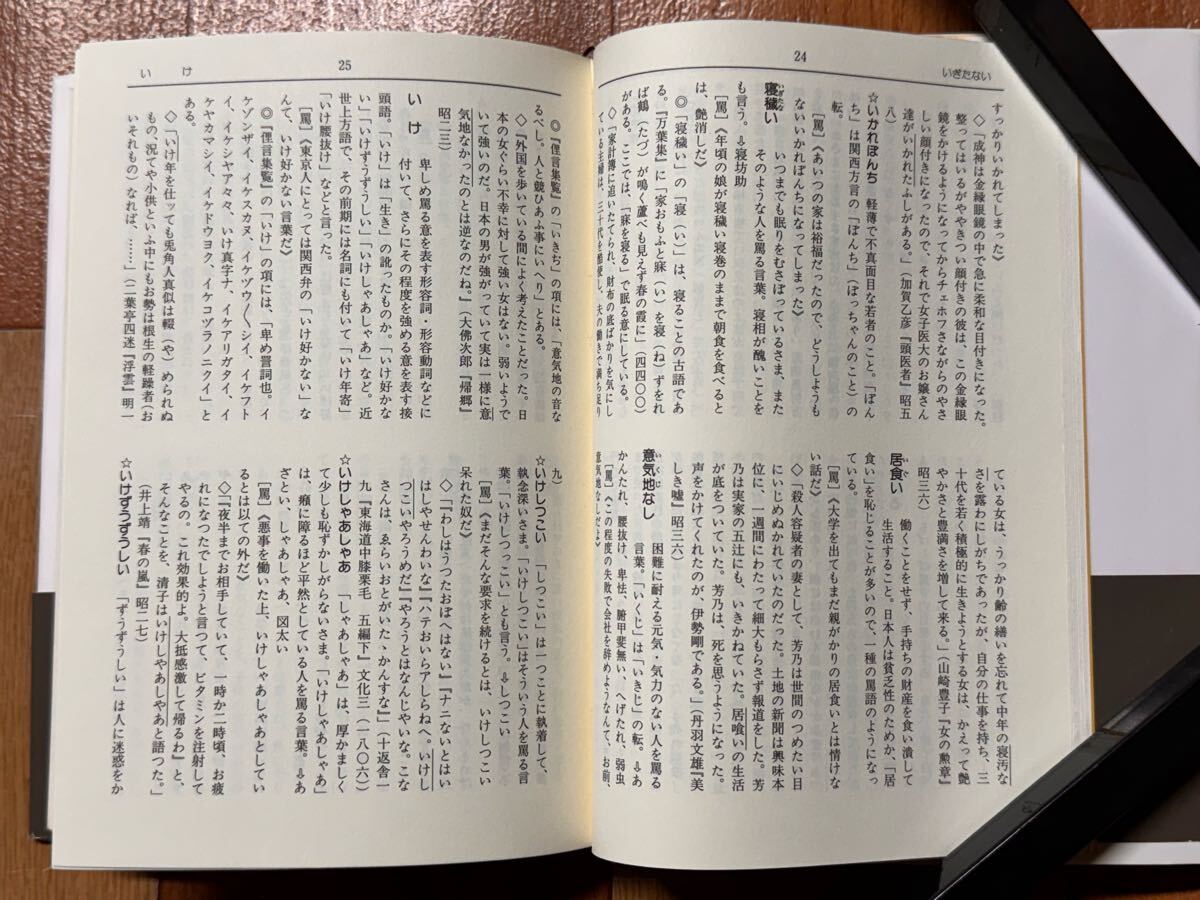 24
いぎたない
すっかりいかれてしまった》
◇「成神は金縁眼鏡の中で急に柔和な目付きになった。
整ってはいるがややきつい顔付きの彼は、この金縁眼
鏡をかけるようになってからチェホフさながらのやさ
しい顔付きになったので、それで女子医大のお嬢さん
達がいかれたふしがある。」(加賀乙彦『頭医者』昭五
八)
☆いかれぽんち 軽薄で不真面目な若者のこと。「ぽん
ち」は関西方言の「ぼんち」(ぼっちゃんのこと)の
転。
[罵]《あいつの家は裕福だったので、どうしようも
ないいかれぽんちになってしまった》
寝穢い いつまでも眠りをむさぼっているさま、また
そのような人を罵る言葉。寝相が醜いことを
も言う。⇩寝坊助
[罵]《年頃の娘が寝穢い寝巻のままで朝食を食べると
は、艶消しだ》
◎「寝穢い」の「寝(い)は、寝ることの古語であ
る。『万葉集』に「家おもふと寐(い)を寝(ね)ずをれ
ば鶴(たづ)が鳴く蘆べも見えず春の霞に」(四四〇〇)
がある。ここでは、「寐を寝る」で眠る意にしている。
◇「家計簿に追いたてられ、財布の底ばかりを気にし
ている主婦は、三十代を酷使し、夫の働きで満ち足り
ている女は、うっかり齢の繕いを忘れて中年の寝汚な
さを露わにしがちであったが、自分の仕事を持ち、三
十代を若く積極的に生きようとする女は、かえって艶
やかさと豊満さを増して来る。」(山崎豊子『女の勲章』
昭三六)
居食い 働くことをせず、手持ちの財産を食い潰して
生活すること。日本人は貧乏性のためか、「居
食い」を恥じることが多いので、一種の罵語のようになっ
ている。
[罵]《大学を出てもまだ親がかりの居食いとは情けな
い話だ》
◇「殺人容疑者の妻として、芳乃は世間のつめたい目
にいじめぬかれていたのだった。土地の新聞は興味本
位に、一週間にわたって細大もらさず報道をした。芳
乃は実家の五辻にも、いきかねていた。居喰いの生活
が底をついていた。芳乃は、死を思うようになった。
声をかけてくれたのが、伊勢剛である。」(丹羽文雄『美
しき嘘』昭三六)
意気地なし 困難に耐える元気・気力のない人を罵る
言葉。「いくじ」は「いきじ」の転。⇩あ
かんたれ、腰抜け、卑怯、腑甲斐無い、へげたれ、弱虫
[罵]《この程度の失敗で会社を辞めようなんて、お前、
意気地なしだよ》
25
いけ
◎『俚言集覧』の「いきぢ」の項には、「意気地の音な
るべし。人と競ひあふ事にいへり」とある。
◇「外国を歩いている間によく考えたことだった。日
本の女ぐらい不幸に対して強い女はない。弱いようで
いて強いのだ。日本の男が強がっていて実は一様に意
気地なかったのとは逆なのだね。」(大佛次郎『帰郷』
昭二三)
いけ 卑しめ罵る意を表す形容詞・形容動詞などに
付いて、さらにその程度を強める意を表す接
頭語。「いけ」は「生き」の訛ったものか。「いけ好かな
い」「いけずうずうしい」「いけしゃあしゃあ」など。近
世上方語で、その前期には名詞にも付いて「いけ年寄」
「いけ腰抜け」などと言った。
[罵]《東京人にとっては関西弁の「いけ好かない」な
んて、いけ好かない言葉だ》
◎『俚言集覧』の「いけ」の項には、「卑め詈詞也。イ
ケゾンザイ、イケスカヌ、イケヅウ〳〵シイ、イケフト
イ、イケシャア々々、いけ真字ナ、イケアリガタイ、イ
ケヤカマシイ、イケドウヨク、イケコヅラノニクイ」と
◇「いけ年を仕ッても兎角人真似は輟(や)められぬ
もの、況てや小供といふ中にもお勢は根生の軽躁者(お
いそれもの)なれば、……」(二葉亭四迷『浮雲』明一
九)
☆いけしつこい 「しつこい」は一つことに執着して、
執念深いさま。「いけしつこい」はそういう人を罵る言
葉。「いけしつっこい」とも言う。⇩しつこい
[罵]《まだそんな要求を続けるとは、いけしつこい
呆れた奴だ》
◇「『わしはうつたおぼへはない』『ナニないとはい
はしやせんわいな』『ハテおいらアしらねへ。いけし
つこいやろうめだ』『やろうとはなんじやいな。こな
さんは、ゑらいおとがいたゝかんすな』」(十返舎一
九『東海道中膝栗毛 五編下』文化三(一八〇六)
☆いけしゃあしゃあ 「しゃあしゃあ」は、厚かましく
て少しも恥ずかしがらないさま。「いけしゃあしゃあ」
は、癪に障るほど平然としている人を罵る言葉。⇩あ
ざとい、しゃあしゃあ、図太い
[罵]《悪事を働いた上、いけしゃあしゃあとしてい
るとは以ての外だ》
◇「『夜半までお相手していて、一時か二時頃、お疲
れになつたでしようと言つて、ビタミンを注射して
やるの。これ効果的よ。大抵感激して帰るわ』と、
そんなことを、清子はいけしやあしやあと語つた。」
(井上靖『春の嵐』昭二七)
☆いけずうずうしい 「ずうずうしい」は人に迷惑をか